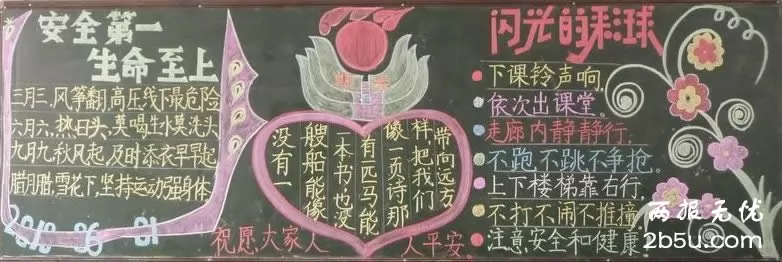 安全第一
生命至上
三月三,风筝翻,高压线下最危险
六月六,热日头,莫喝生水莫洗头
九月九,秋风起,及时添衣早早起
腊月腊,雪花下,坚持运动强身体
没有一
艘船能像
一本书,也没
有匹马能
像一页诗那
样,把我们
带向远方
祝愿大家人人平安。
闪光的彩球
下课铃声响,
依次出课堂。
走廊内静静行,
不跑不跳不争抢。
上下楼梯靠右行,
不打不闹不推撞,
注意安全和健康
两报无优
2b5u.com